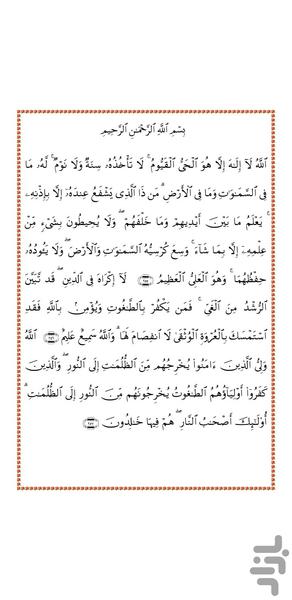 بِسْمِ ٱللَّهِ ٱلرَّحْمَٰنِ ٱلرَّحِيمِ
ٱللَّهُ لَآ إِلَٰهَ إِلَّا هُوَ ٱلْحَىُّ ٱلْقَيُّومُ ۚ لَا تَأْخُذُهُۥ سِنَةٌ وَلَا نَوْمٌ ۚ لَّهُۥ مَا
فِى ٱلسَّمَٰوَٰتِ وَمَا فِى ٱلْأَرْضِ ۗ مَن ذَا ٱلَّذِى يَشْفَعُ عِندَهُۥٓ إِلَّا بِإِذْنِهِۦ
ۚ يَعْلَمُ مَا بَيْنَ أَيْدِيهِمْ وَمَا خَلْفَهُمْ ۖ وَلَا يُحِيطُونَ بِشَىْءٍ مِّنْ
عِلْمِهِۦٓ إِلَّا بِمَا شَآءَ ۚ وَسِعَ كُرْسِيُّهُ ٱلسَّمَٰوَٰتِ وَٱلْأَرْضَ ۖ وَلَا يَـُٔودُهُۥ
حِفْظُهُمَا ۚ وَهُوَ ٱلْعَلِىُّ ٱلْعَظِيمُ ﴿٢٥٥﴾ لَآ إِكْرَاهَ فِى ٱلدِّينِ ۖ قَد تَّبَيَّنَ
ٱلرُّشْدُ مِنَ ٱلْغَىِّ ۚ فَمَن يَكْفُرْ بِٱلطَّٰغُوتِ وَيُؤْمِنۢ بِٱللَّهِ فَقَدِ
ٱسْتَمْسَكَ بِٱلْعُرْوَةِ ٱلْوُثْقَىٰ لَا ٱنفِصَامَ لَهَا ۗ وَٱللَّهُ سَمِيعٌ عَلِيمٌ ﴿٢٥٦﴾ ٱللَّهُ
وَلِىُّ ٱلَّذِينَ ءَامَنُوا۟ يُخْرِجُهُم مِّنَ ٱلظُّلُمَٰتِ إِلَى ٱلنُّورِ ۖ وَٱلَّذِينَ
كَفَرُوٓا۟ أَوْلِيَآؤُهُمُ ٱلطَّٰغُوتُ يُخْرِجُونَهُم مِّنَ ٱلنُّورِ إِلَى ٱلظُّلُمَٰتِ ۗ
أُو۟لَٰٓئِكَ أَصْحَٰبُ ٱلنَّارِ ۖ هُمْ فِيهَا خَٰلِدُونَ ﴿٢٥٧﴾
بازار